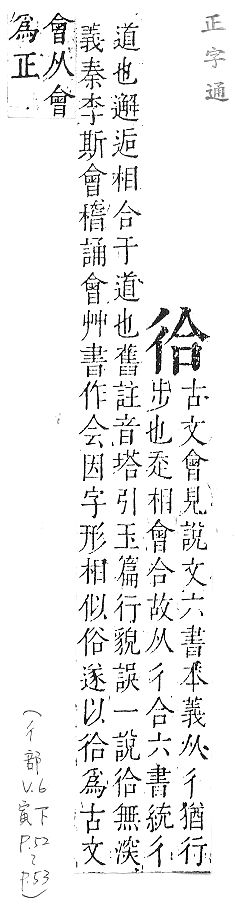 正字通
㣛
古文會見說文六書本義从彳猶行
步也相會合故从彳合六書統彳
道也邂逅相合于道也舊註音塔引玉篇行貌誤一說㣛無深
義秦李斯會稽誦會艸書作会因字形相似俗遂以㣛爲古文
會从會
爲正
(彳部 V.6 寅下 P.52~P.53)